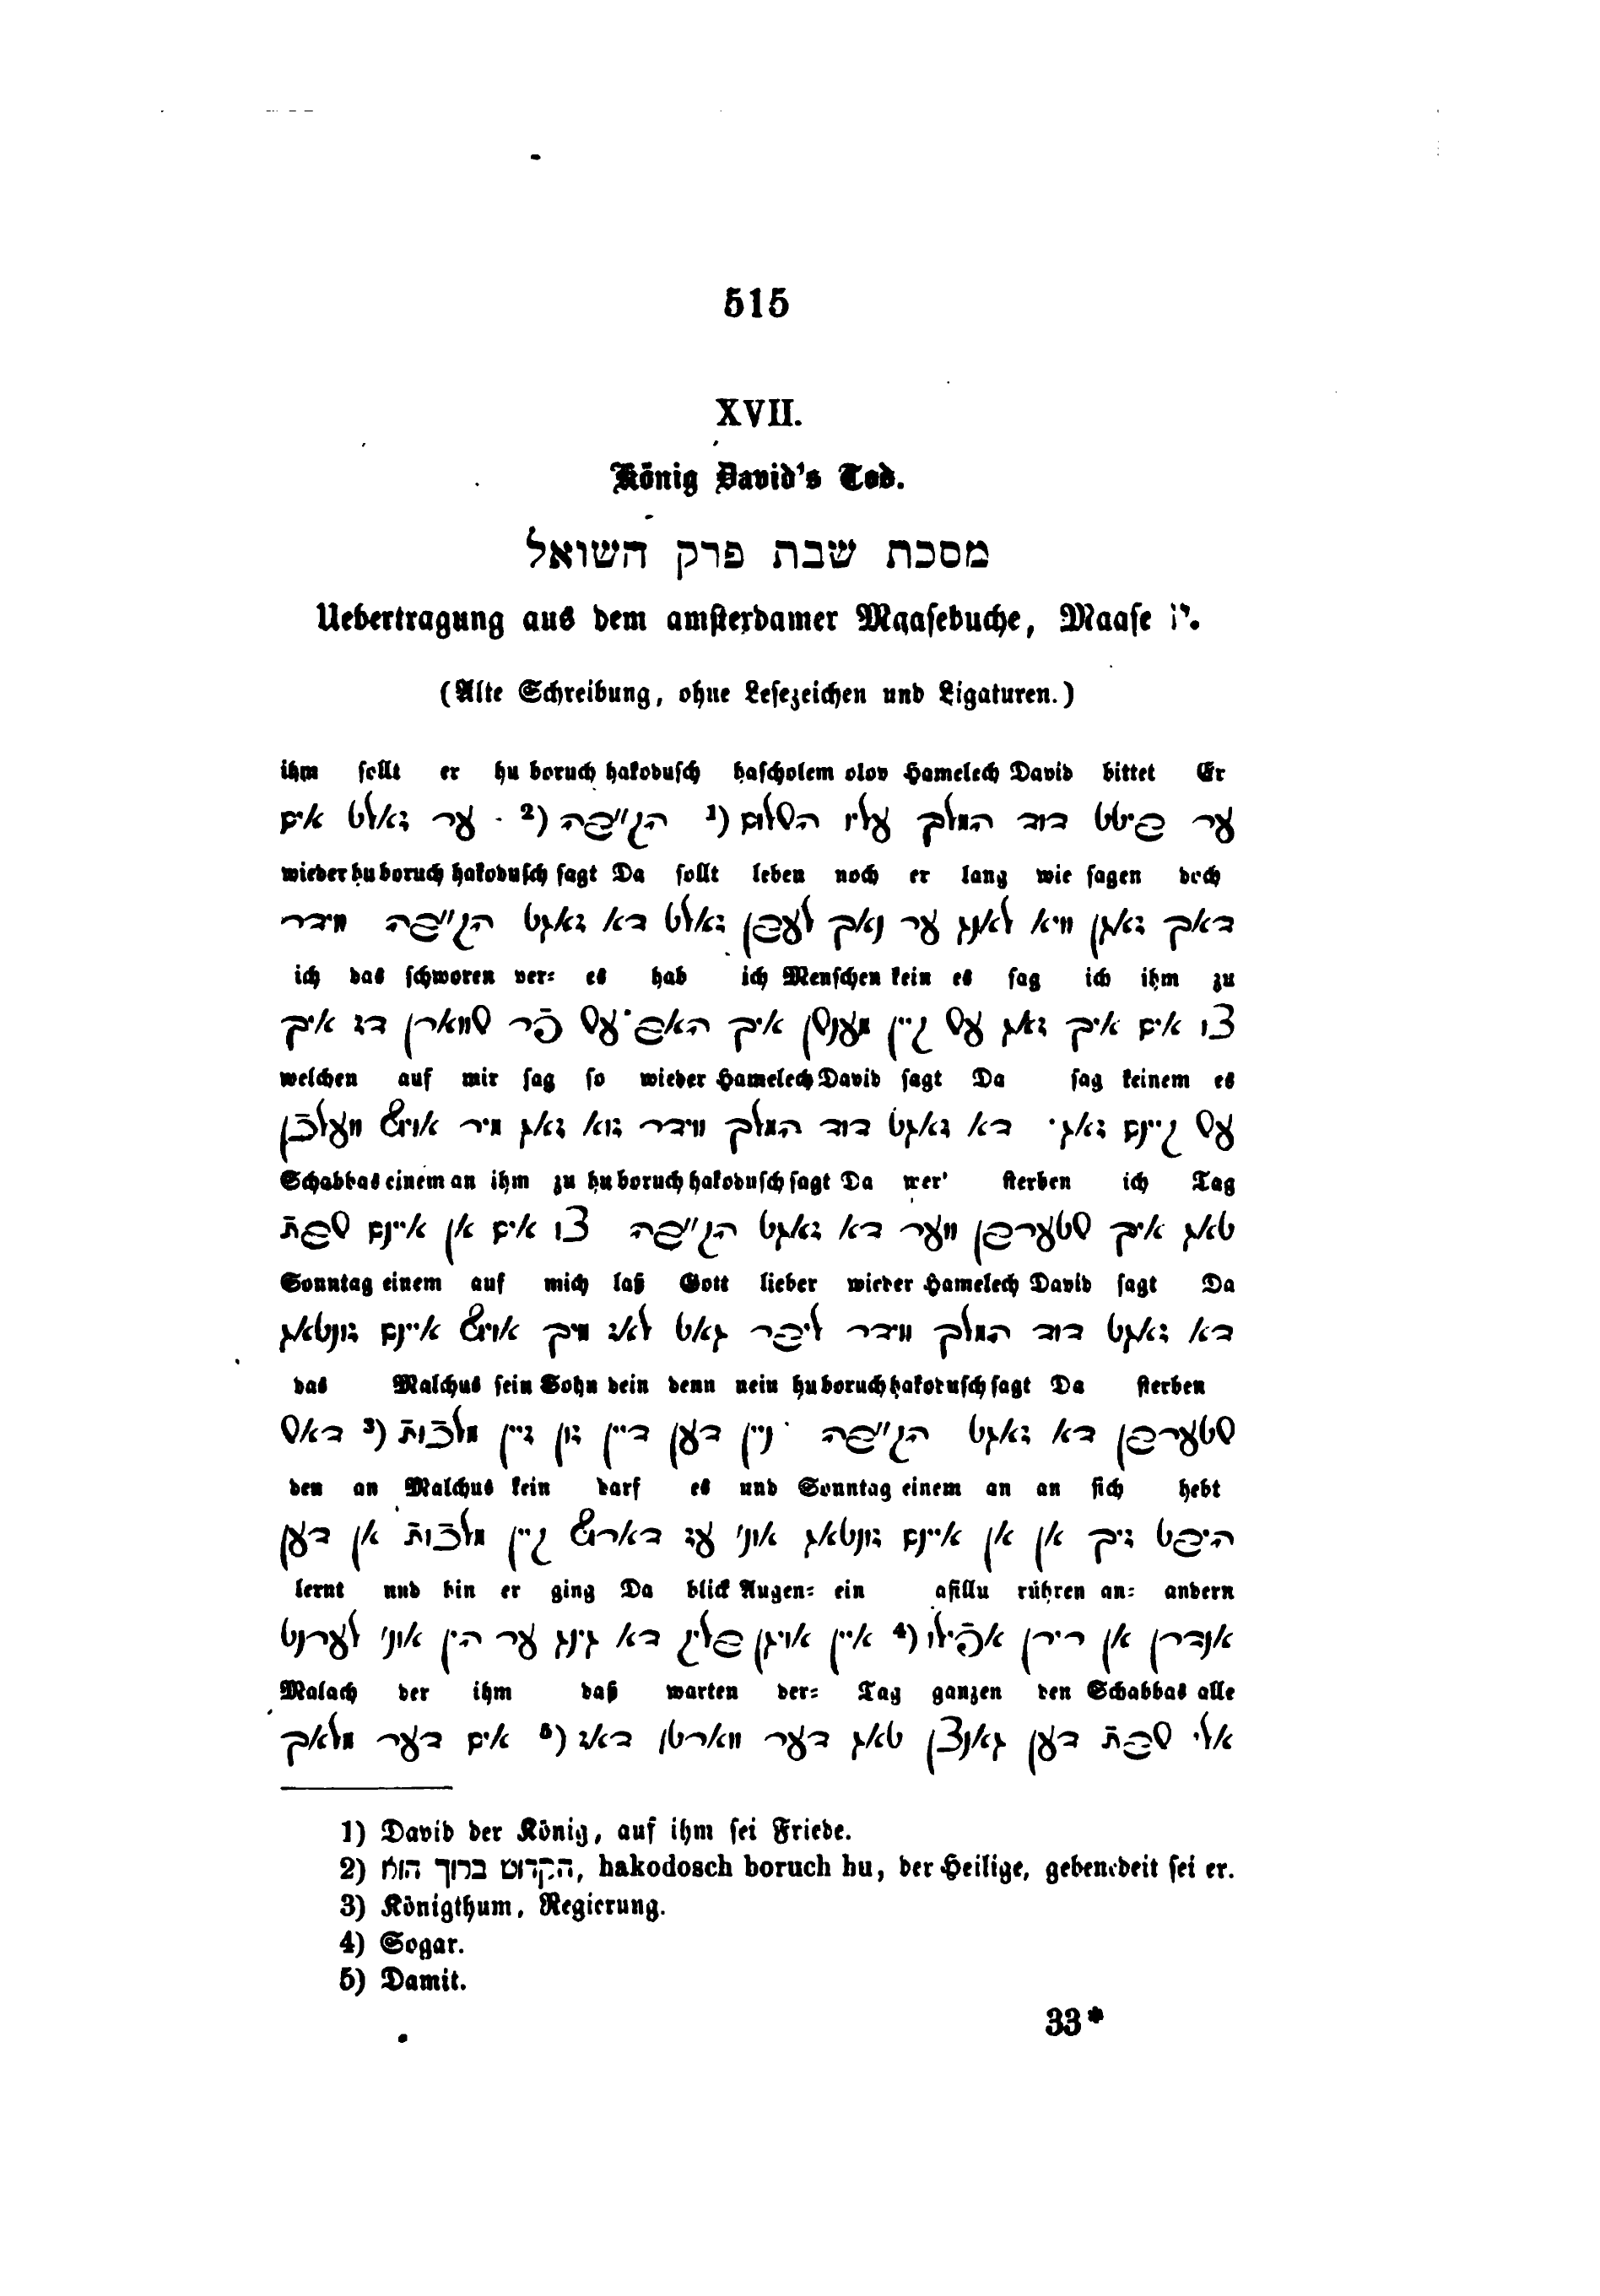 515
XVII.
König David's Tod.
מסכת שבת פרק השואל
Uebertragung aus dem amsterdamer Maasebuche, Maase י"ו.
(Alte Schreibung, ohne Lesezeichen und Ligaturen.)
ihm sollt er hu boruch hakodusch hascholem olov Hamelech David bittet Er
ער ביטט דוד המלך עליו השלום (1 הק״בה (2 ער זאלט אים
wieder hu boruch hakodusch sagt Da sollt leben noch er lang wie sagen doch
דאך זאגן וויא לאנג ער נאך לעבן זאלט דא זאגט הק״בה ווידר
ich das schworen ver= es hab ich Menschen kein es sag ich ihm zu
צו אים איך זאג עס קיין מענשן איך האב עס פֿר שווארן דז איך
welchen auf mir sag so wieder Hamelech David sagt Da sag keinem es
עס קיינם זאג דא זאגט דוד המלך ווידר זוא זאג מיר אויף וועלכֿן
Schabbas einem an ihm zu hu boruch hakodusch sagt Da wer' sterben ich Tag
טאג איך שטערבן ווער דא זאגט הק״בה צו אים אן איינם שבתֿ
Sonntag einem auf mich laß Gott lieber wieder Hamelech David sagt Da
דא זאגט דוד המלך ווידר ליבר גאט לאז מיך אויף איינם זונטאג
das Malchus sein Sohn dein denn nein hu boruch hakodusch sagt Da sterben
שטערבן דא זאגט הק״בה ניין דען דיין זון זיין מלכֿותֿ (3 דאס
den an Malchus kein darf es und Sonntag einem an an sich hebt
היבט זיך אן אן איינם זונטאג אונ' עז דארף קיין מלכֿותֿ אן דען
lernt und hin er ging Da blick Augen= ein afillu rühren an= andern
אנדרן אן רירן אפֿילו (4 איין אויגן בליק דא גינג ער הין אונ' לערנט
Malach der ihm daß warten der= Tag ganzen den Schabbas alle
אלי שבתֿ דען גאנצן טאג דער ווארטן דאז (5 אים דער מלאך
1) David der König, auf ihm sei Friede.
2) הקדוש ברוך הוא, hakodosch boruch hu, der Heilige, gebenedeit sei er.
3) Königthum, Regierung.
4) Sogar.
5) Damit.
33*